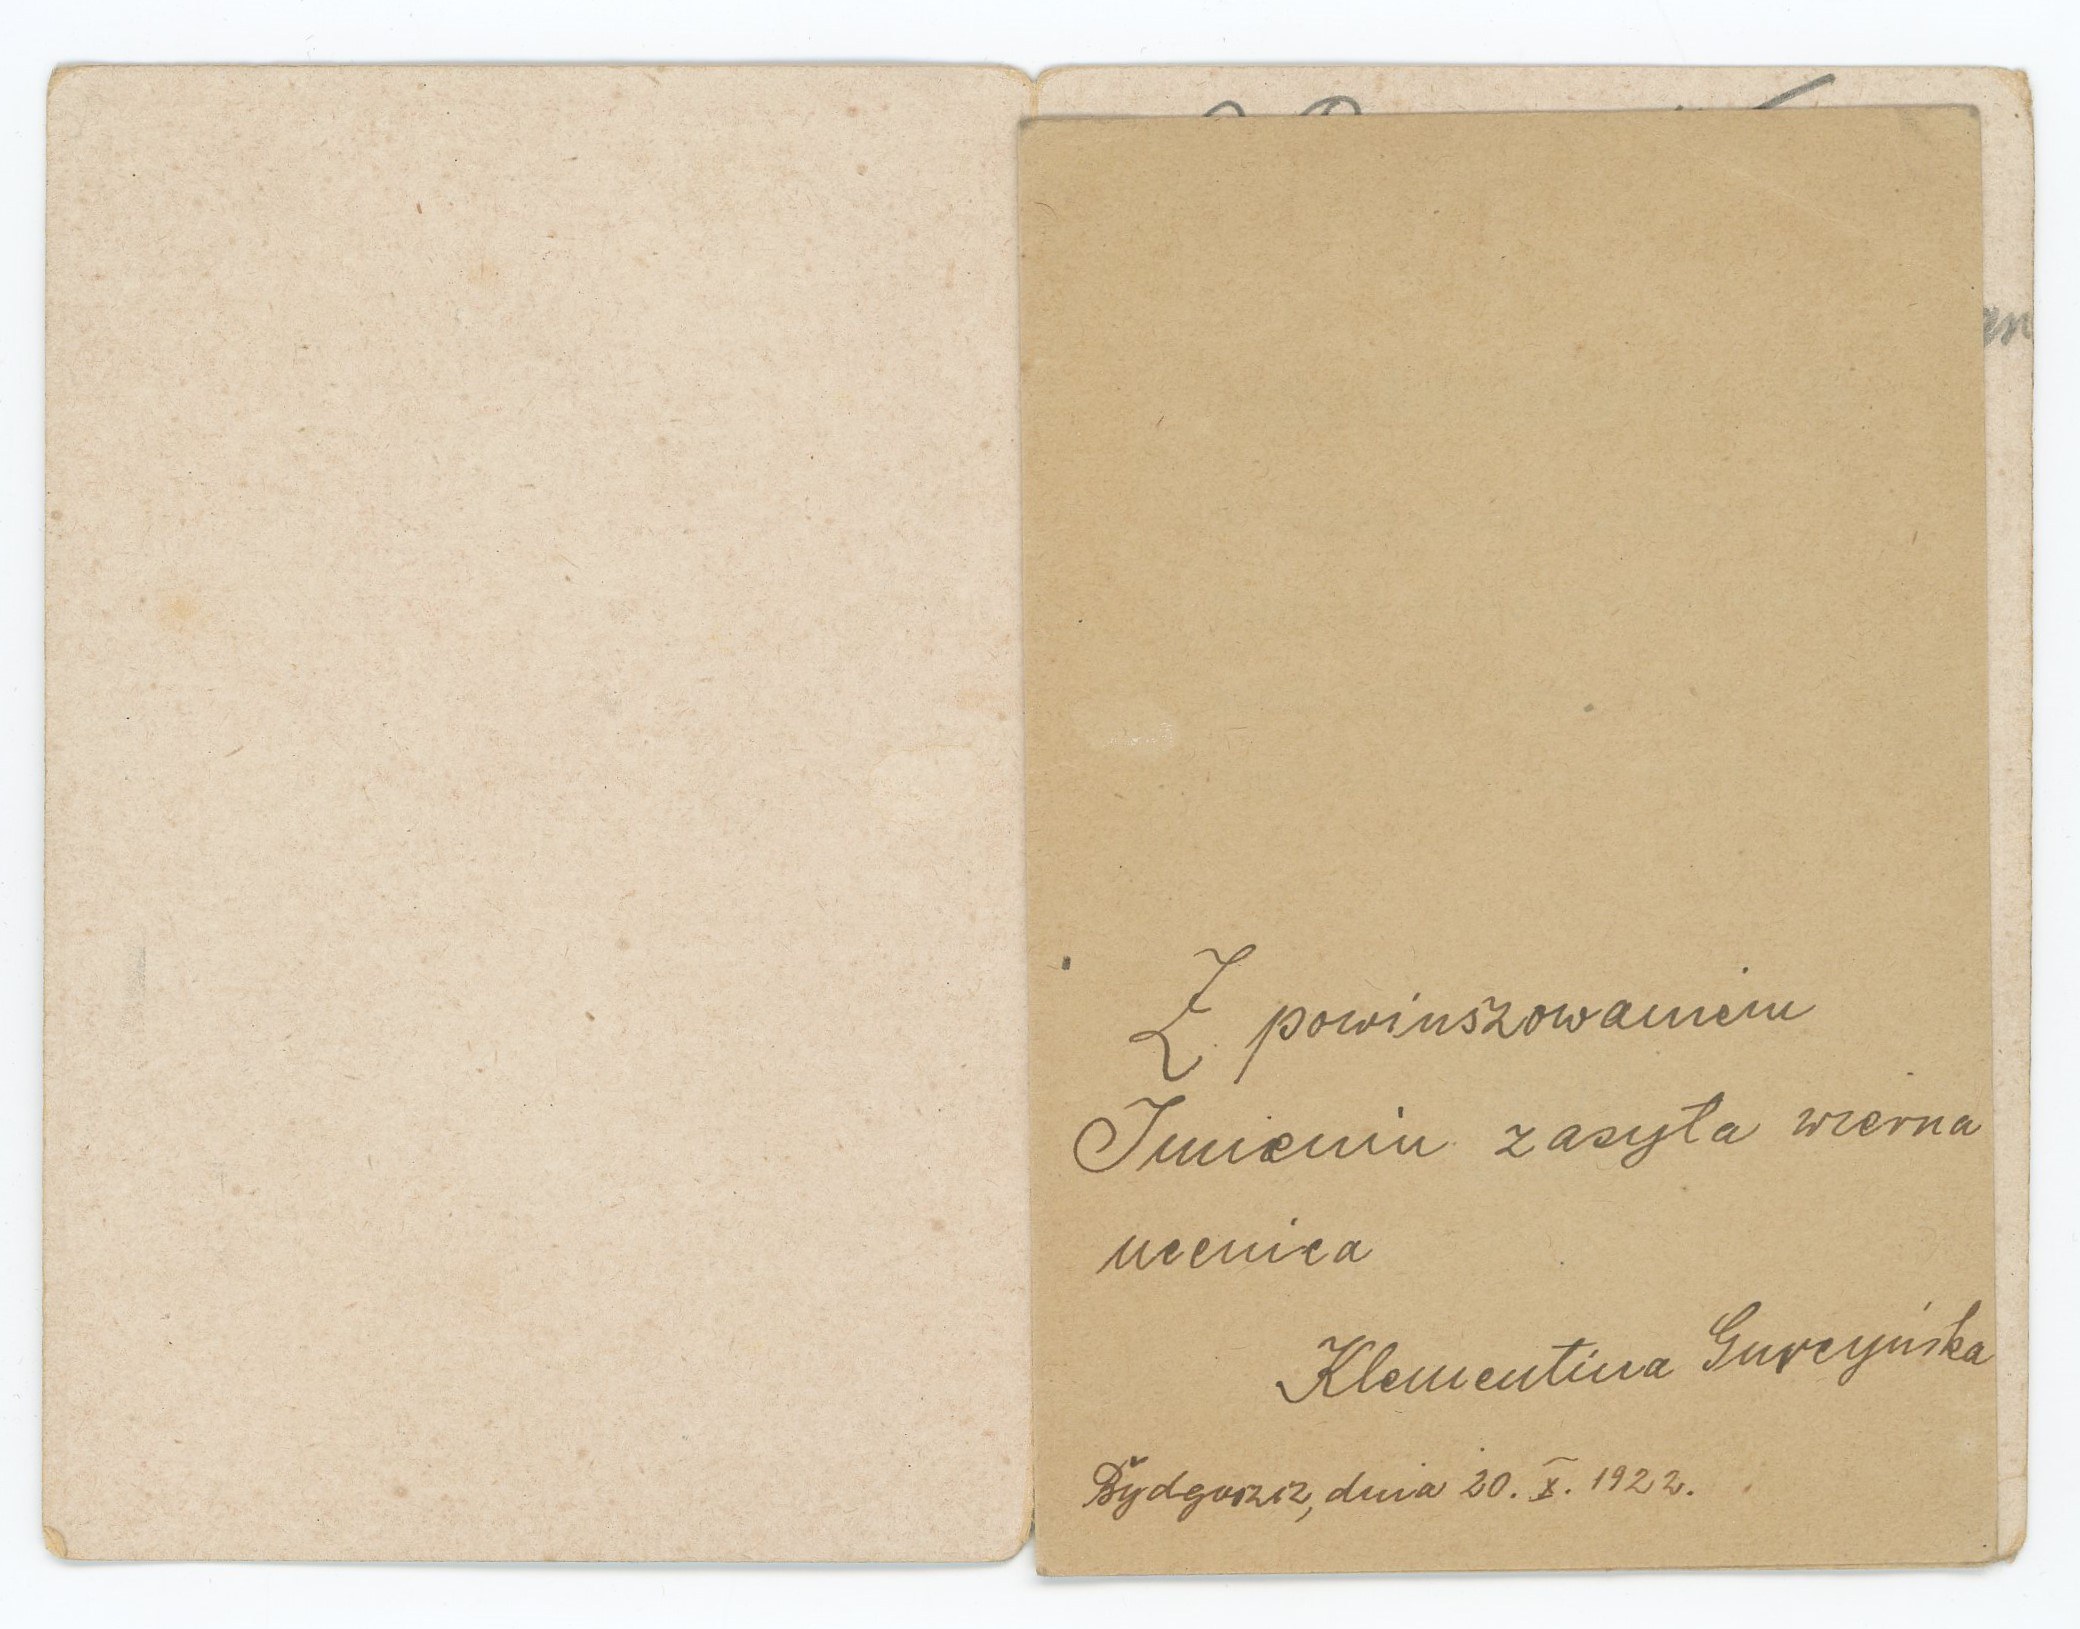 Z powinszowaniem
Imienin zasyła wierna
ucenica
Klementina Gurcyńska
Bydgoszcz, dnia 20. X. 1922.